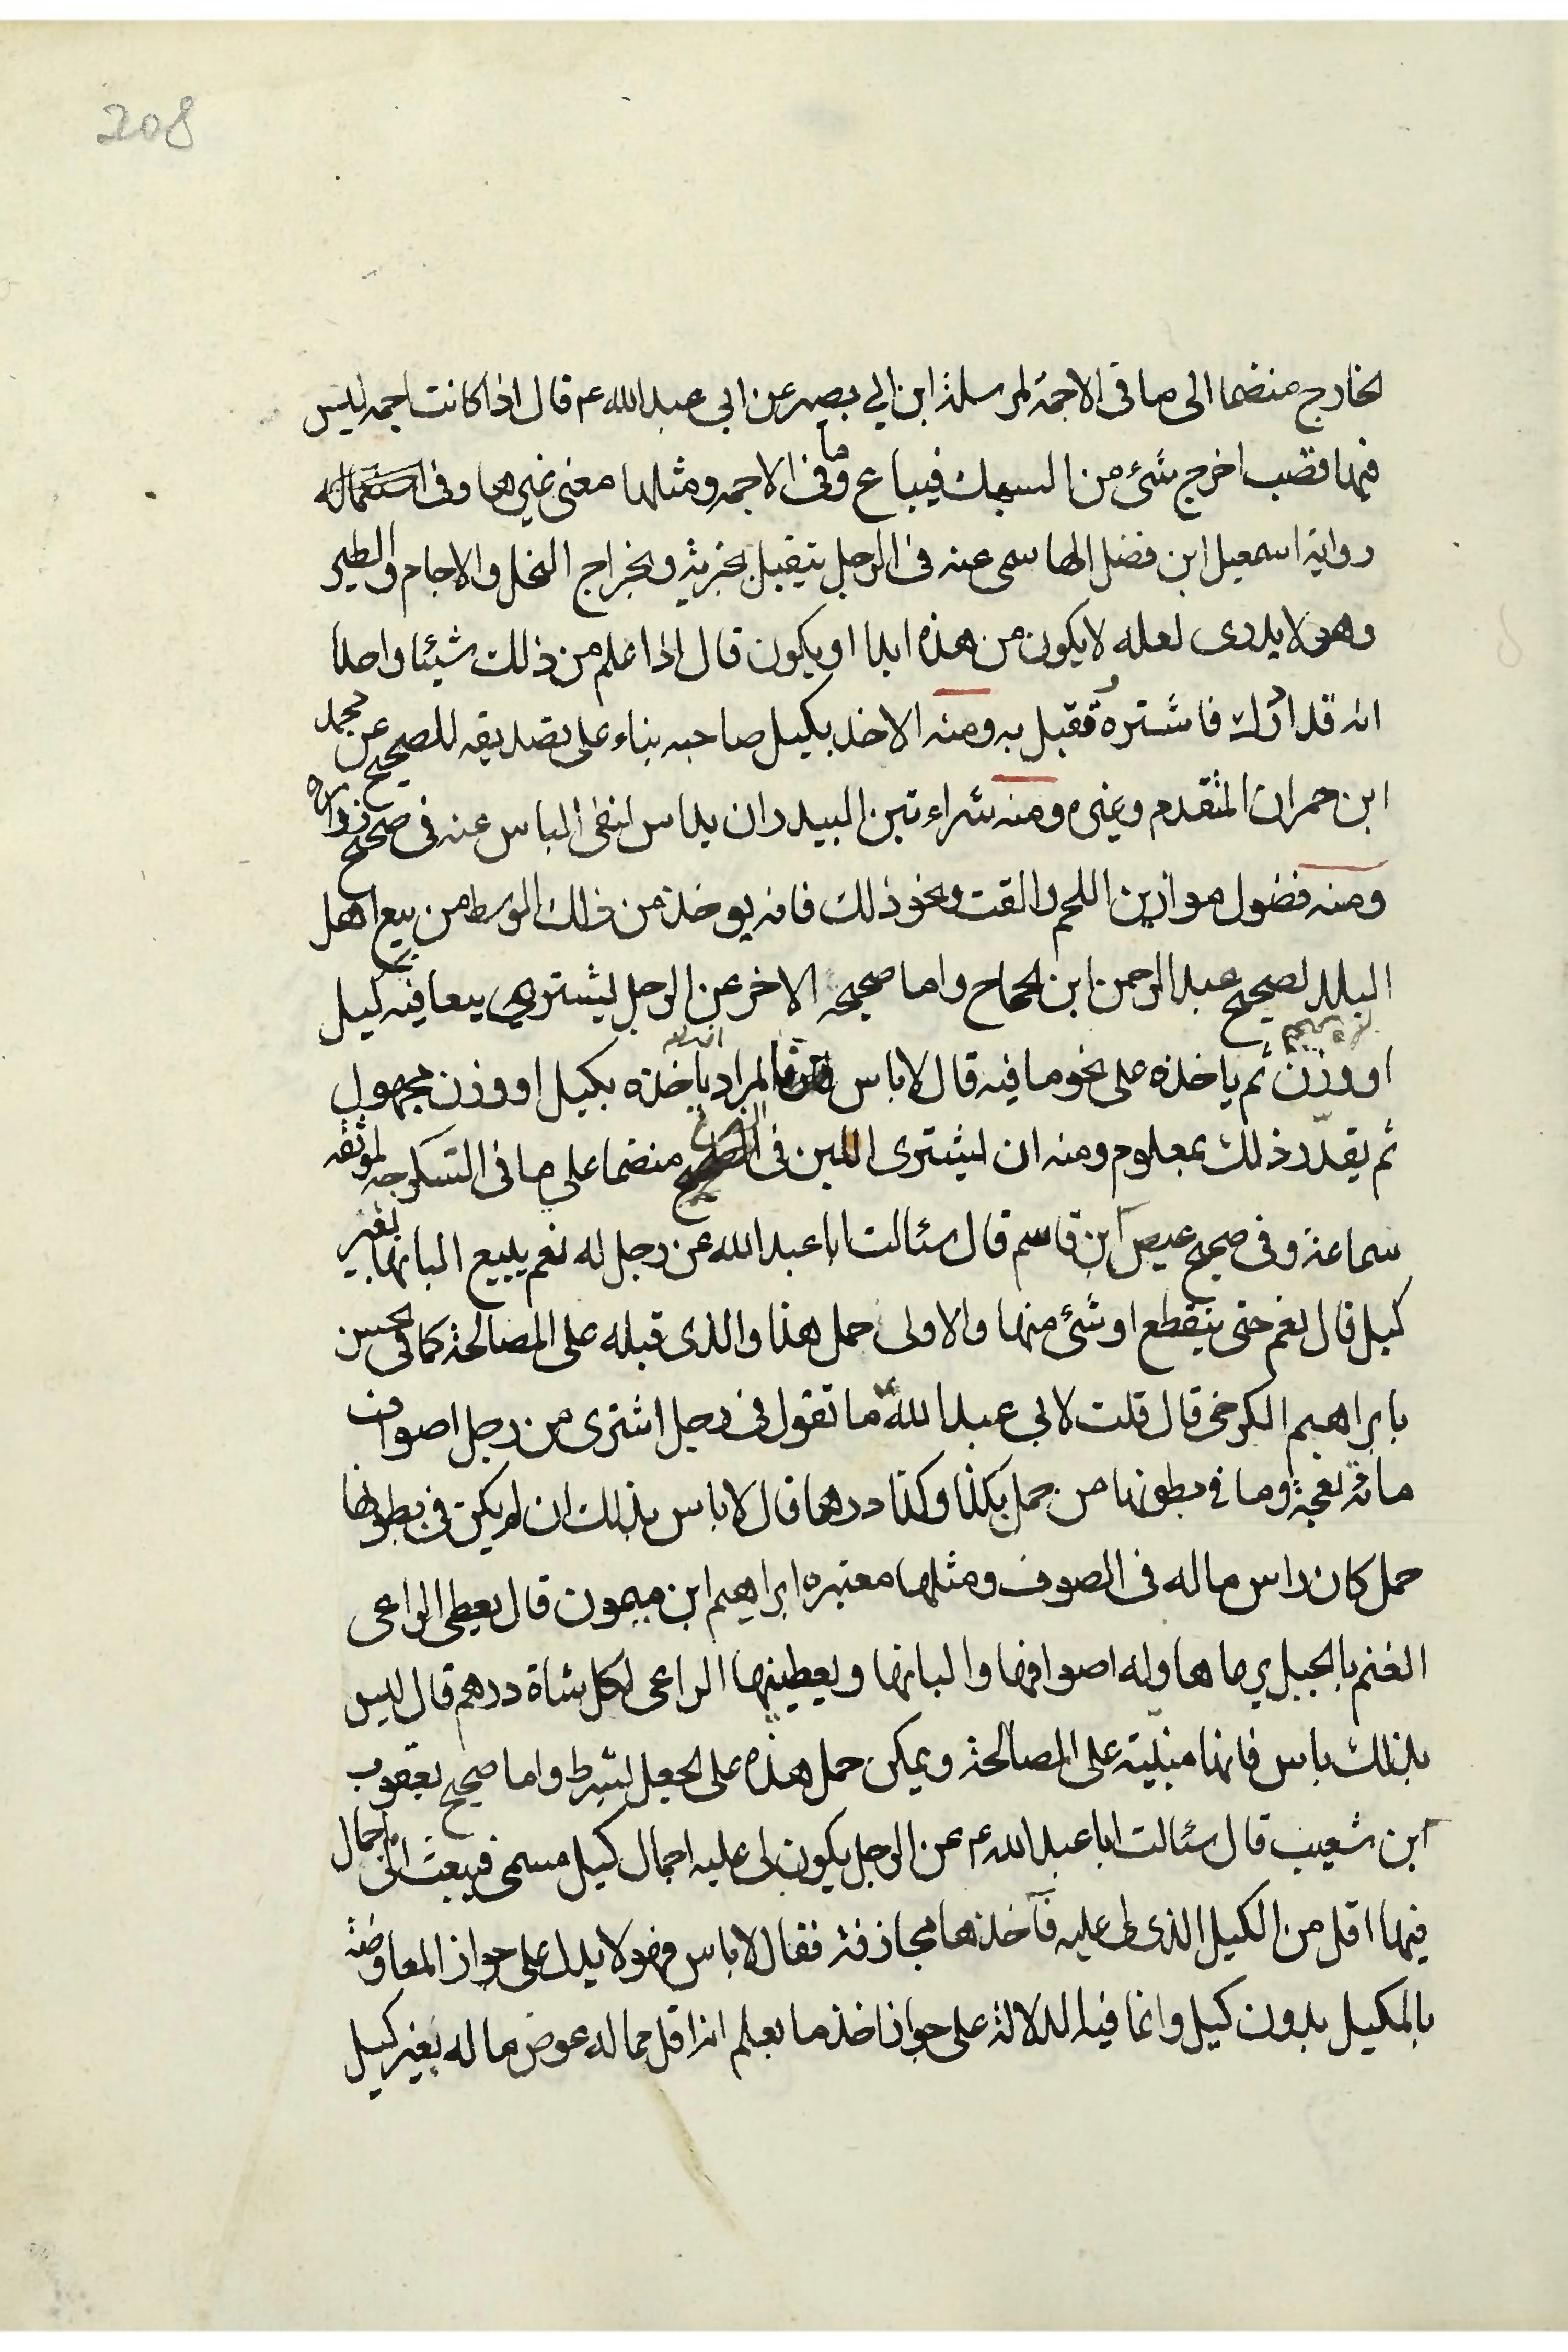 208
الخارج منضما الى ما فى الاجمة لمرسلة ابن ابي بصير عن ابي عبدالله ع قال اذا كانت اجمه ليس
فيها قصب اخرج شئ من السمك فيباع وما فى الاجمه ومثلها معنى غيرها وفى
رواية اسمعيل ابن فضل الهاسمى عنه فى الرجل يتقبل بجزية وبخراج النخل والاجام والطير
وهو لا يدرى لعله لا يكون من هذه ابدا او يكون قال اذا علم من ذلك شيئا واحدا
انه قد ادرك فاشتره وتقبل به ومنه الاخذ بكيل صاحبه بناء على تصديقه للصحيح عن محمد
ابن حمران المتقدم وغيره ومنه شراء تبن البيدر ان يداس لنفى الباس عنه فى صحيح زراره
ومنه فضول موازين اللحم والقت ونحو ذلك فانه يوخذ من ذلك الوسط من بيع اهل
البلد لصحيح عبد الرحمن ابن الحجاج واما صحيحه الاخر عن الرجل ليشترى بيعا فيه كيل
او وزن ثم ياخذه على نحو ما فيه قال لا باس المراد ياخذه بكيل او وزن مجهول
ثم يقدّر ذلك بمعلوم ومنه ان ليشترى اللبن فى الضرع منضما على ما فى التسكرجه لموثقه
سماعة وفى صحيح عيص ابن قاسم قال سئالت ابا عبدالله عن رجل له نعم يبيع البانها بغير
كيل قال نعم حتى ينقطع او شئ منها والاولى حمل هذا والذى قبله على المصالحة كما فى حسن
بابراهيم الكرخى قال قلت لابي عبدالله ع ما تقول فى رجل اشترى من رجل اصواف
مائة نعجة وما فى بطونها من حمل بكذا وكذا درهما قال لا باس بذلك ان لم يكن فى بطونها
حمل كان راس ماله فى الصوف ومثلها معتبره ابراهيم ابن ميمون قال يعطى الراعى
الغنم بالجبل يرعاها وله اصوافها والبانها ويعطينها الراعى لكل شاة درهم قال ليس
بذلك باس فانها مبنيّة على المصالحة ويمكن حمل هذه على الجعل لشرط واما صحيح يعقوب
ابن شعيب قال سئالت ابا عبدالله ع عن الرجل يكون لى عليه احمال كيل مسمى فيبعث الى احمال
فيها اقل من الكيل الذى لى عليه فآخذها مجازفة فقال لا باس فهو لا يدل على جواز المعاوضة
بالمكيل بدون كيل وانما فيه الدلالة على جواز اخذ ما يعلم انه اقل مماله عوض ماله بغير كيل